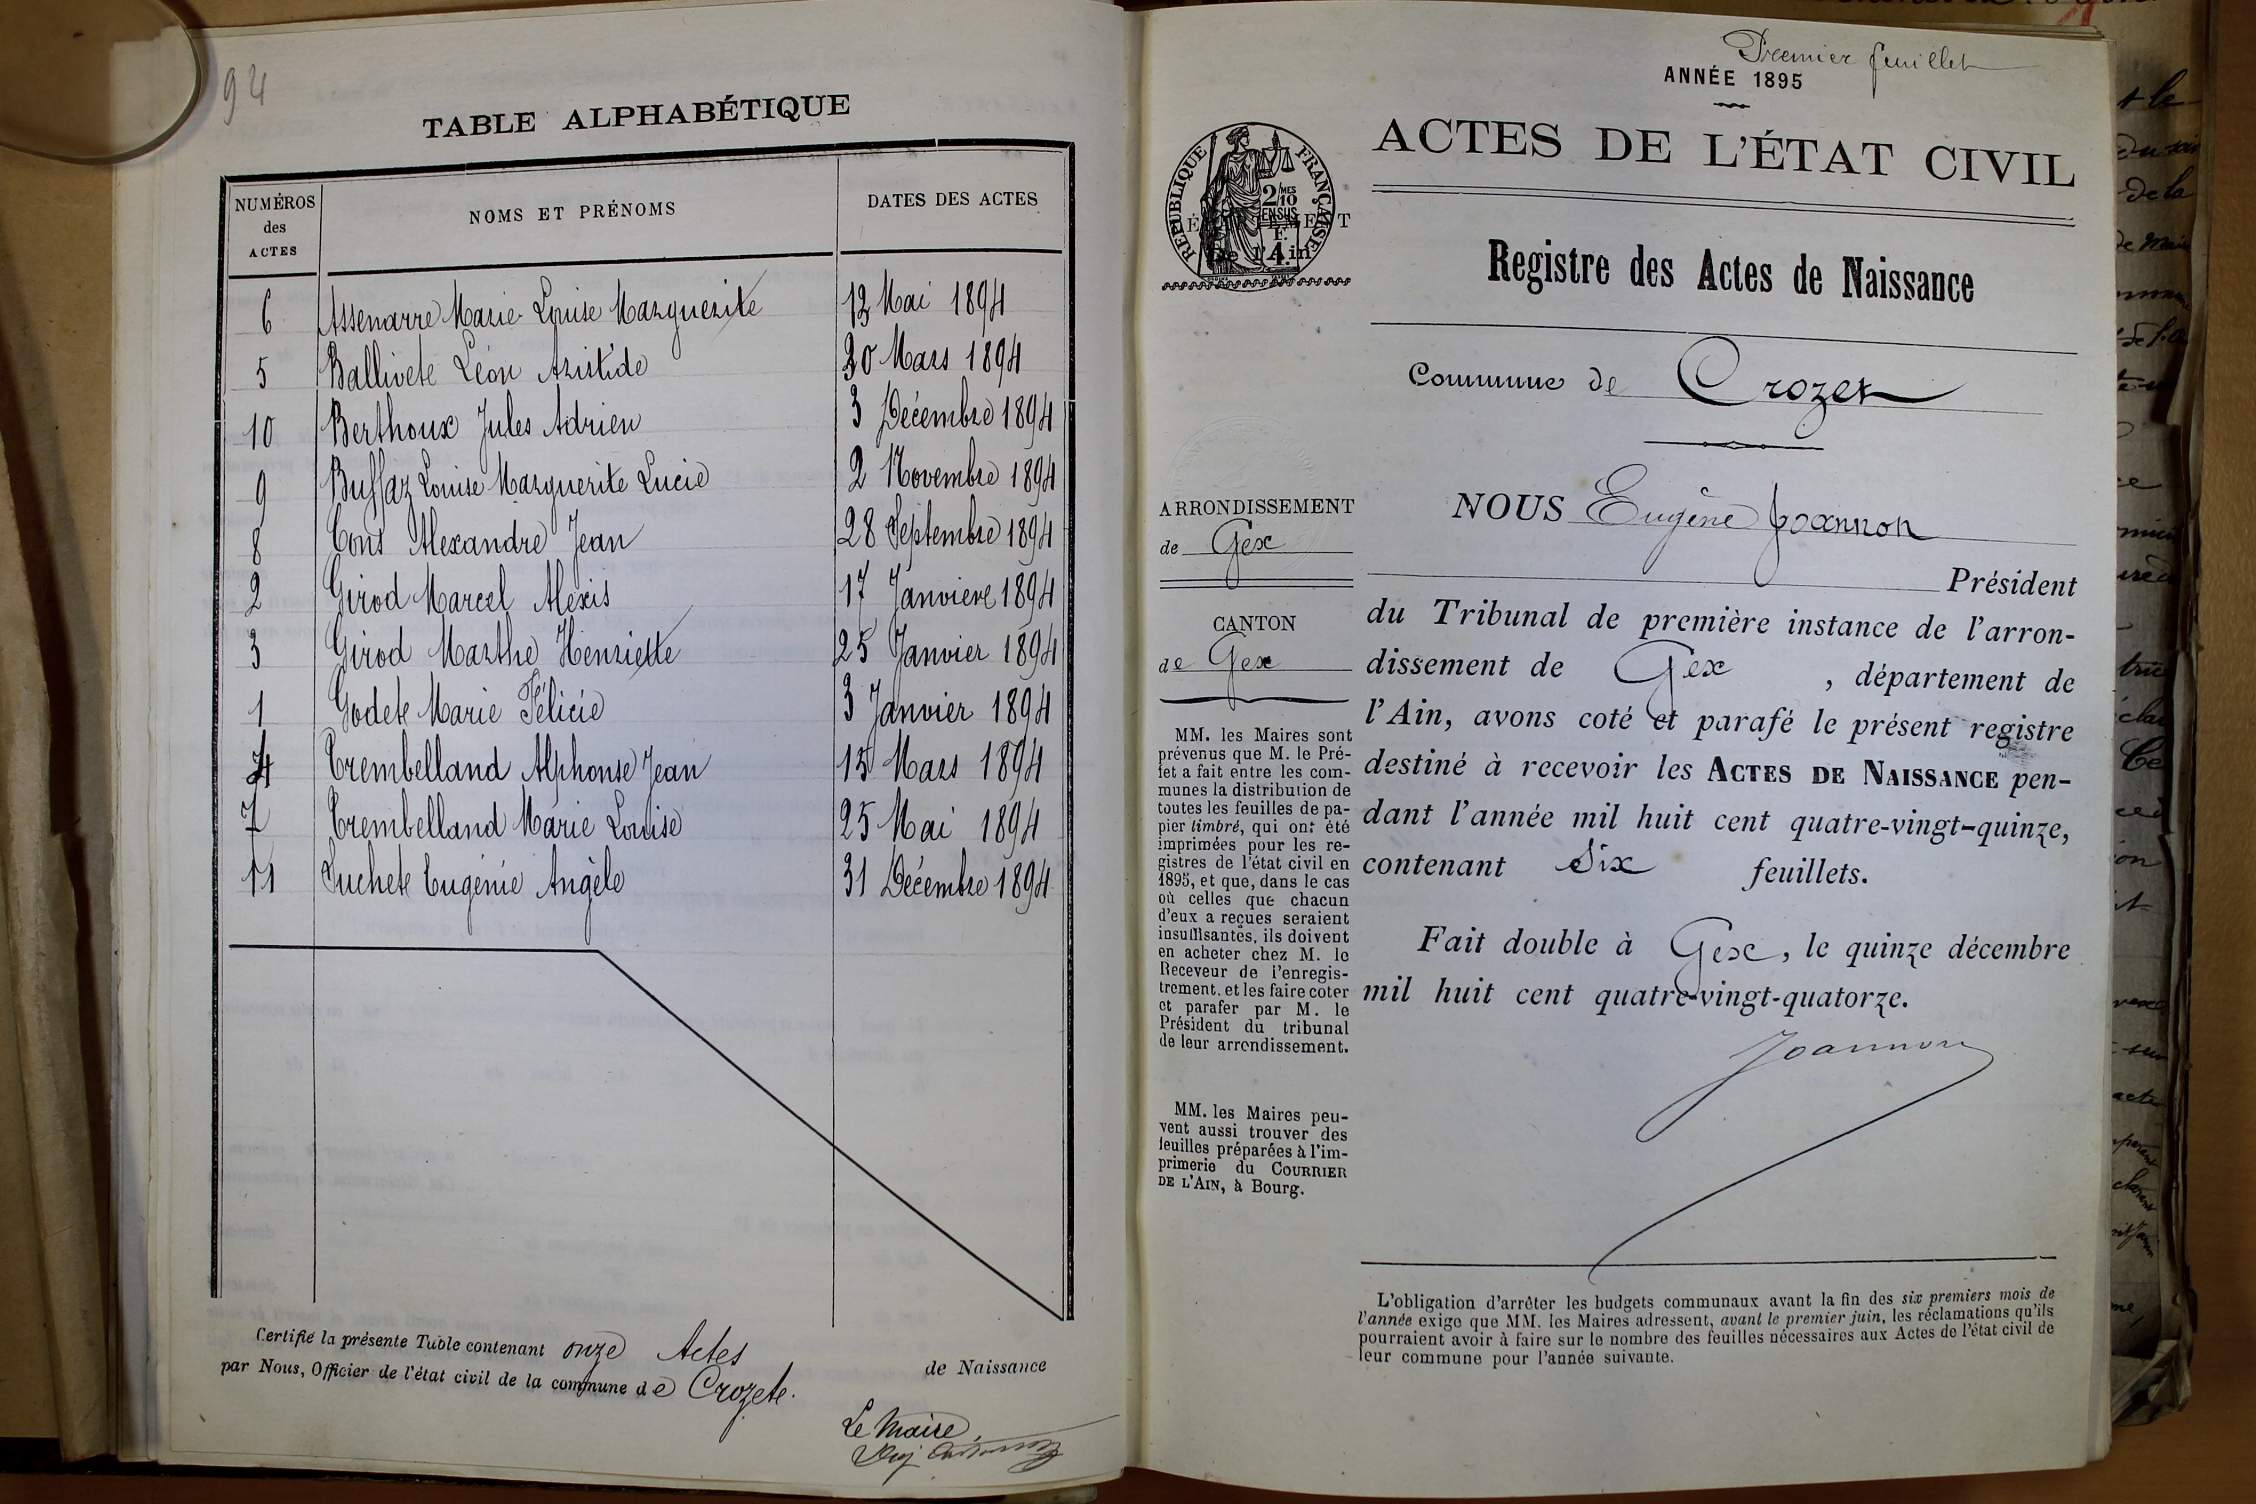 94
TABLE ALPHABÉTIQUE
NUMÉROS des ACTES
NOMS ET PRÉNOMS
DATES DES ACTES
6 Assenarre Marie Louise Marguerite 12 Mai 1894
5 Ballivete Léon Aristide 30 Mars 1894
10 Berthoux Jules Adrien 3 Décembre 1894
9 Buffaz Louise Marguerite Lucie 2 Novembre 1894
8 Cons Alexandre Jean 28 Septembre 1894
2 Girod Marcel Alexis 17 Janviere 1894
3 Girod Marthe Henriette 25 Janvier 1894
1 Godete Marie Félicie 3 Janvier 1894
4 Trembelland Alphonse Jean 15 Mars 1894
7 Trembelland Marie Louise 25 Mai 1894
11 Suchete Eugénie Angèle 31 Décembre 1894
Certifié la présente Table contenant onze Actes de Naissance
par Nous, Officier de l'état civil de la commune de Crozete.
Le Maire,
Premier feuillet
ANNÉE 1895
ACTES DE L'ÉTAT CIVIL
RÉPUBLIQUE FRANÇAISE
2/10
MES
EN SUS
De l'Ain
Registre des Actes de Naissance
Commune de Crozet
ARRONDISSEMENT
de Gex
CANTON
de Gex
MM. les Maires sont
prévenus que M. le Pré-
fet a fait entre les com-
munes la distribution de
toutes les feuilles de pa-
pier timbré, qui ont été
imprimées pour les re-
gistres de l'état civil en
1895, et que, dans le cas
où celles que chacun
d'eux a reçues seraient
insuffisantes, ils doivent
en acheter chez M. le
Receveur de l'enregis-
trement, et les faire coter
et parafer par M. le
Président du tribunal
de leur arrondissement.
MM. les Maires peu-
vent aussi trouver des
feuilles préparées à l'im-
primerie du COURRIER
DE L'AIN, à Bourg.
NOUS Eugène Joannon
Président
du Tribunal de première instance de l'arron-
dissement de Gex, département de
l'Ain, avons coté et parafé le présent registre
destiné à recevoir les ACTES DE NAISSANCE pen-
dant l'année mil huit cent quatre-vingt-quinze,
contenant Six feuillets.
Fait double à Gex, le quinze décembre
mil huit cent quatre-vingt-quatorze.
Joannon
L'obligation d'arrêter les budgets communaux avant la fin des six premiers mois de
l'année exige que MM. les Maires adressent, avant le premier juin, les réclamations qu'ils
pourraient avoir à faire sur le nombre des feuilles nécessaires aux Actes de l'état civil de
leur commune pour l'année suivante.